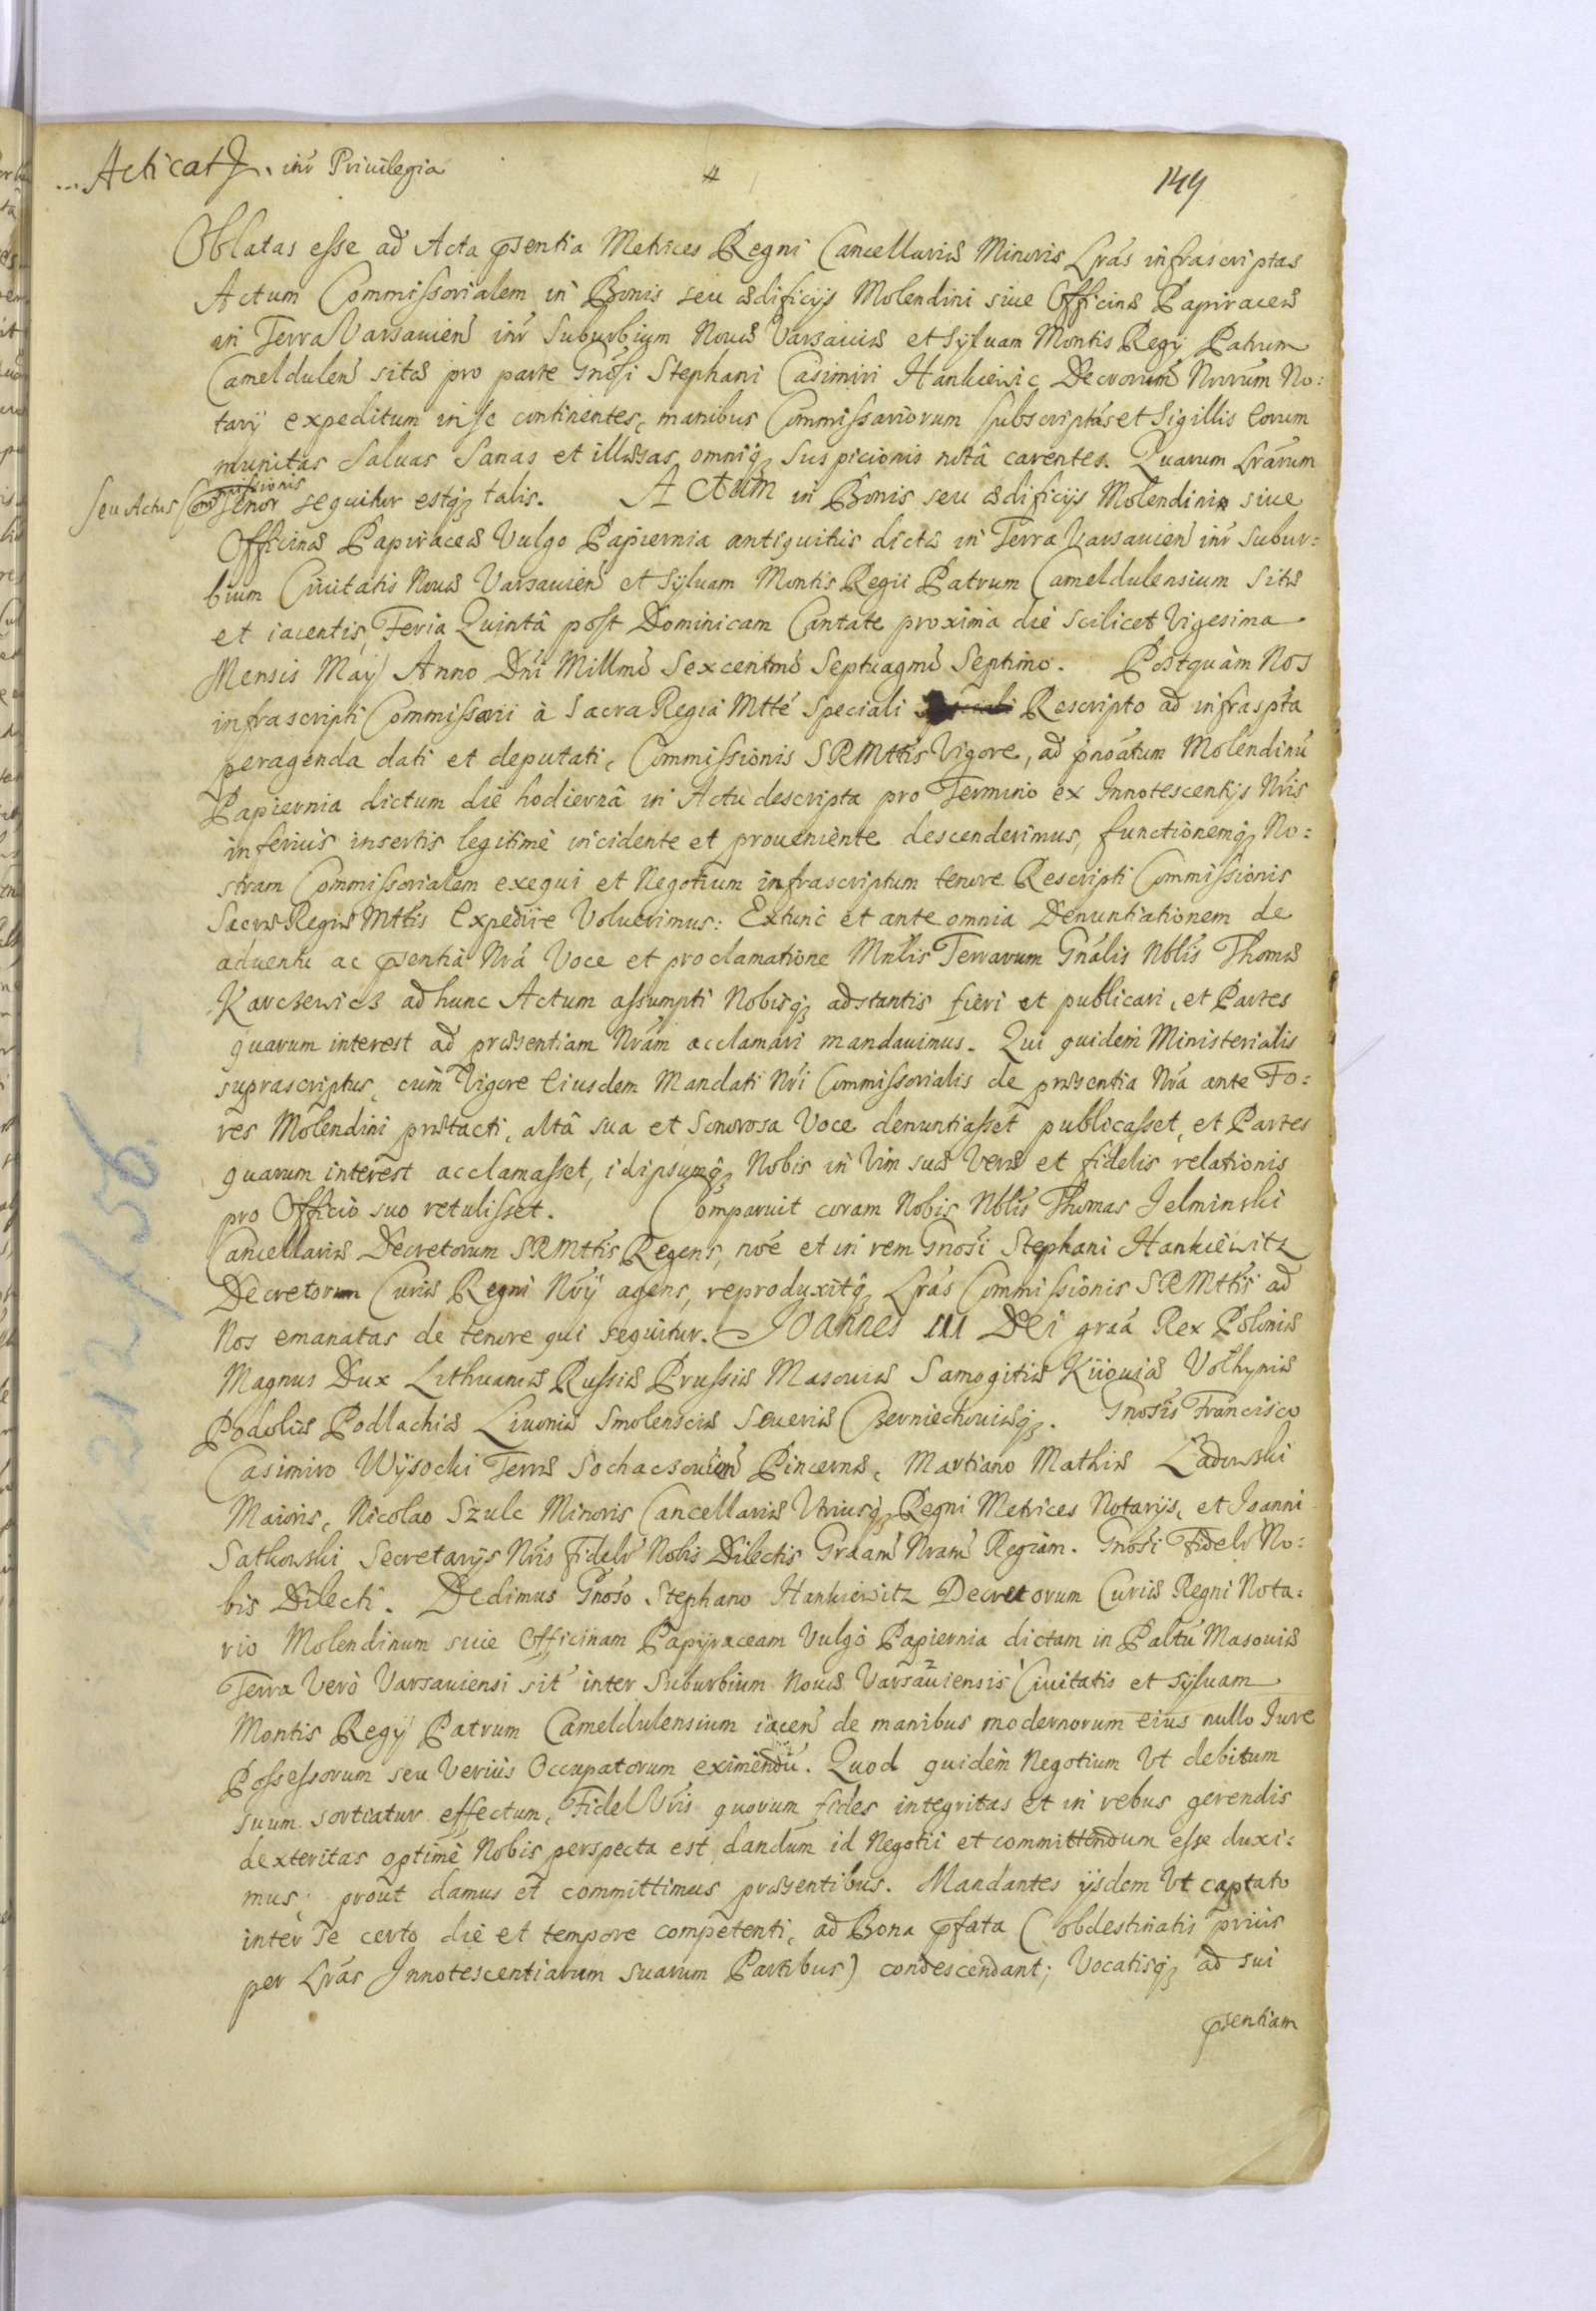 ... Acticat . int̃ Priuilegia
#
149
Oblatas esse ad Acta p̃sentia Metrices Regni Cancellariæ Minoris Lr̃ás infrascriptas
Actum Commissorialem in Bonis seu ædificijs Molendini siue Officinæ Papiraceæ
in Terra Varsauien̄ int̃ Suburbium Nouæ Varsauiæ et Syluam Montis Regÿ Patrum
Cameldulen̄ sitæ pro parte Gnósi Stephani Casimiri Hankiewic Decrorum̃ Nrórúm No:
tarÿ expeditum in se continentes, manibus Commissariorum subscriptás et Sigillis eorum
munitas saluas sanas et illæsas omniq́ꝫ suspicionis notâ carentes. Quarum Lr̃árum
seu Actus Commissionis Tenor sequitur estq́ꝫ talis. Actum in Bonis seu ædificijs Molendini siue
Officinæ Papiraceæ Vulgo Papiernia antiquitus dictæ in Terra Varsauien̄ int̃ Subur:
bium Ciuitatis Nouæ Varsauien̄ et Syluam Montis Regii Patrum Cameldulensium sitæ
et iacentis, Feria Quintâ post Dominicam Cantate proxima die scilicet Vigesima
Mensis Maÿ Anno Dńi Millmõ Sexcentmõ Septuagmõ Septimo. Postquàm Nos
infrascripti Commissarii à Sacra Regia Mtté speciali Rescripto ad infraspta
peragenda dati et deputati, Commissionis SRMttis Vigore, ad pnóatum Molendinũ
Papiernia dictum die hodiernâ in Actu descripta pro Termino ex Innotescentijs Nrís
inferius insertis legitimè incidente et proueniente descenderimus, functionemq́ꝫ No:
stram Commissorialem exequi et Negotium infrascriptum tenore Rescripti Commissionis
Sacræ Regiæ Mttís Expedire Voluerimus: Extunc et ante omnia Denuntiationem de
aduentu ac p̃sentiâ Nrá Voce et proclamatione Mnlís Terrarum Gnális Nblís Thomæ
Karczewicz ad hunc Actum assumpti Nobisq́ꝫ adstantis fieri et publicari, et Partes
quarum interest ad præsentiam Nrám acclamari mandauimus. Qui quidem Ministerialis
suprascriptus, cum Vigore Eiusdem Mandati Nrí Commissorialis de præsentia Nrá ante Fo:
res Molendini prætacti, altâ sua et Sonorosa Voce denuntiasset publicasset, et Partes
quarum interest acclamasset, idipsumq́ꝫ Nobis in Vim suæ Veræ et fidelis relationis
pro Officio suo retulisset. Comparuit coram Nobis Nblís Thomas Jelminski
Cancellariæ Decretorum SRMttis Regens, noé et in rem Gnosí Stephani Hankiewitz
Decretorum Curiæ Regni Nrÿ agens, reproduxitq́ꝫ Lr̃ás Commissionis SRMttis ad
Nos emanatas de tenore qui sequitur. Joannes III Dei graã Rex Poloniæ
Magnus Dux Lithuaniæ Russiæ Prussiæ Masouiæ Samogitiæ Kiiouiæ Volhyniæ
Podoliæ Podlachiæ Liuoniæ Smolensciæ Seueriæ Czerniechouiæq́ꝫ. Gnosís Francisco
Casimiro Wÿsocki Terræ Sochaczouien̄ Pincernæ, Martiano Mathiæ Ładowski
Maioris, Nicolao Szulc Minoris Cancellariæ Vtriusq́ꝫ Regni Metrices Notarijs, et Joanni
Satkowski Secretarijs Nrís Fidelr̃ Nobis Dilectis Graam̃ Nram̃ Regiam. Gnosí Fidelr̃ No:
bis Dilecti. Dedimus Gnosó Stephano Hankiewitz Decretorum Curiæ Regni Nota:
rio Molendinum siue Officinam Papÿraceam Vulgo Papiernia dictam in Palttũ Masouiæ
Terra Verò Varsauiensi sit̃ inter Suburbium Nouæ Varsauiensis Ciuitatis et Syluam
Montis Regÿ Patrum Cameldulensium iacen̄ de manibus modernorum eius nullo Jure
Possessorum seu Veriùs Occupatorum eximendũ. Quod quidem Negotium Vt debitum
suum sortiatur effectum, Fidel Vrís quorum fides integritas et in rebus gerendis
dexteritas optimè Nobis perspecta est, dandum id Negotii et committendum esse duxi:
mus, prout damus et committimus præsentibus. Mandantes ijsdem Vt captato
inter se certo die et tempore competenti, ad Bona p̃fata (obdestinatis priùs
per Lr̃ás Innotescentiarum suarum Partibus) condescendant; Vocatisq́ꝫ ad sui
p̃sentiam